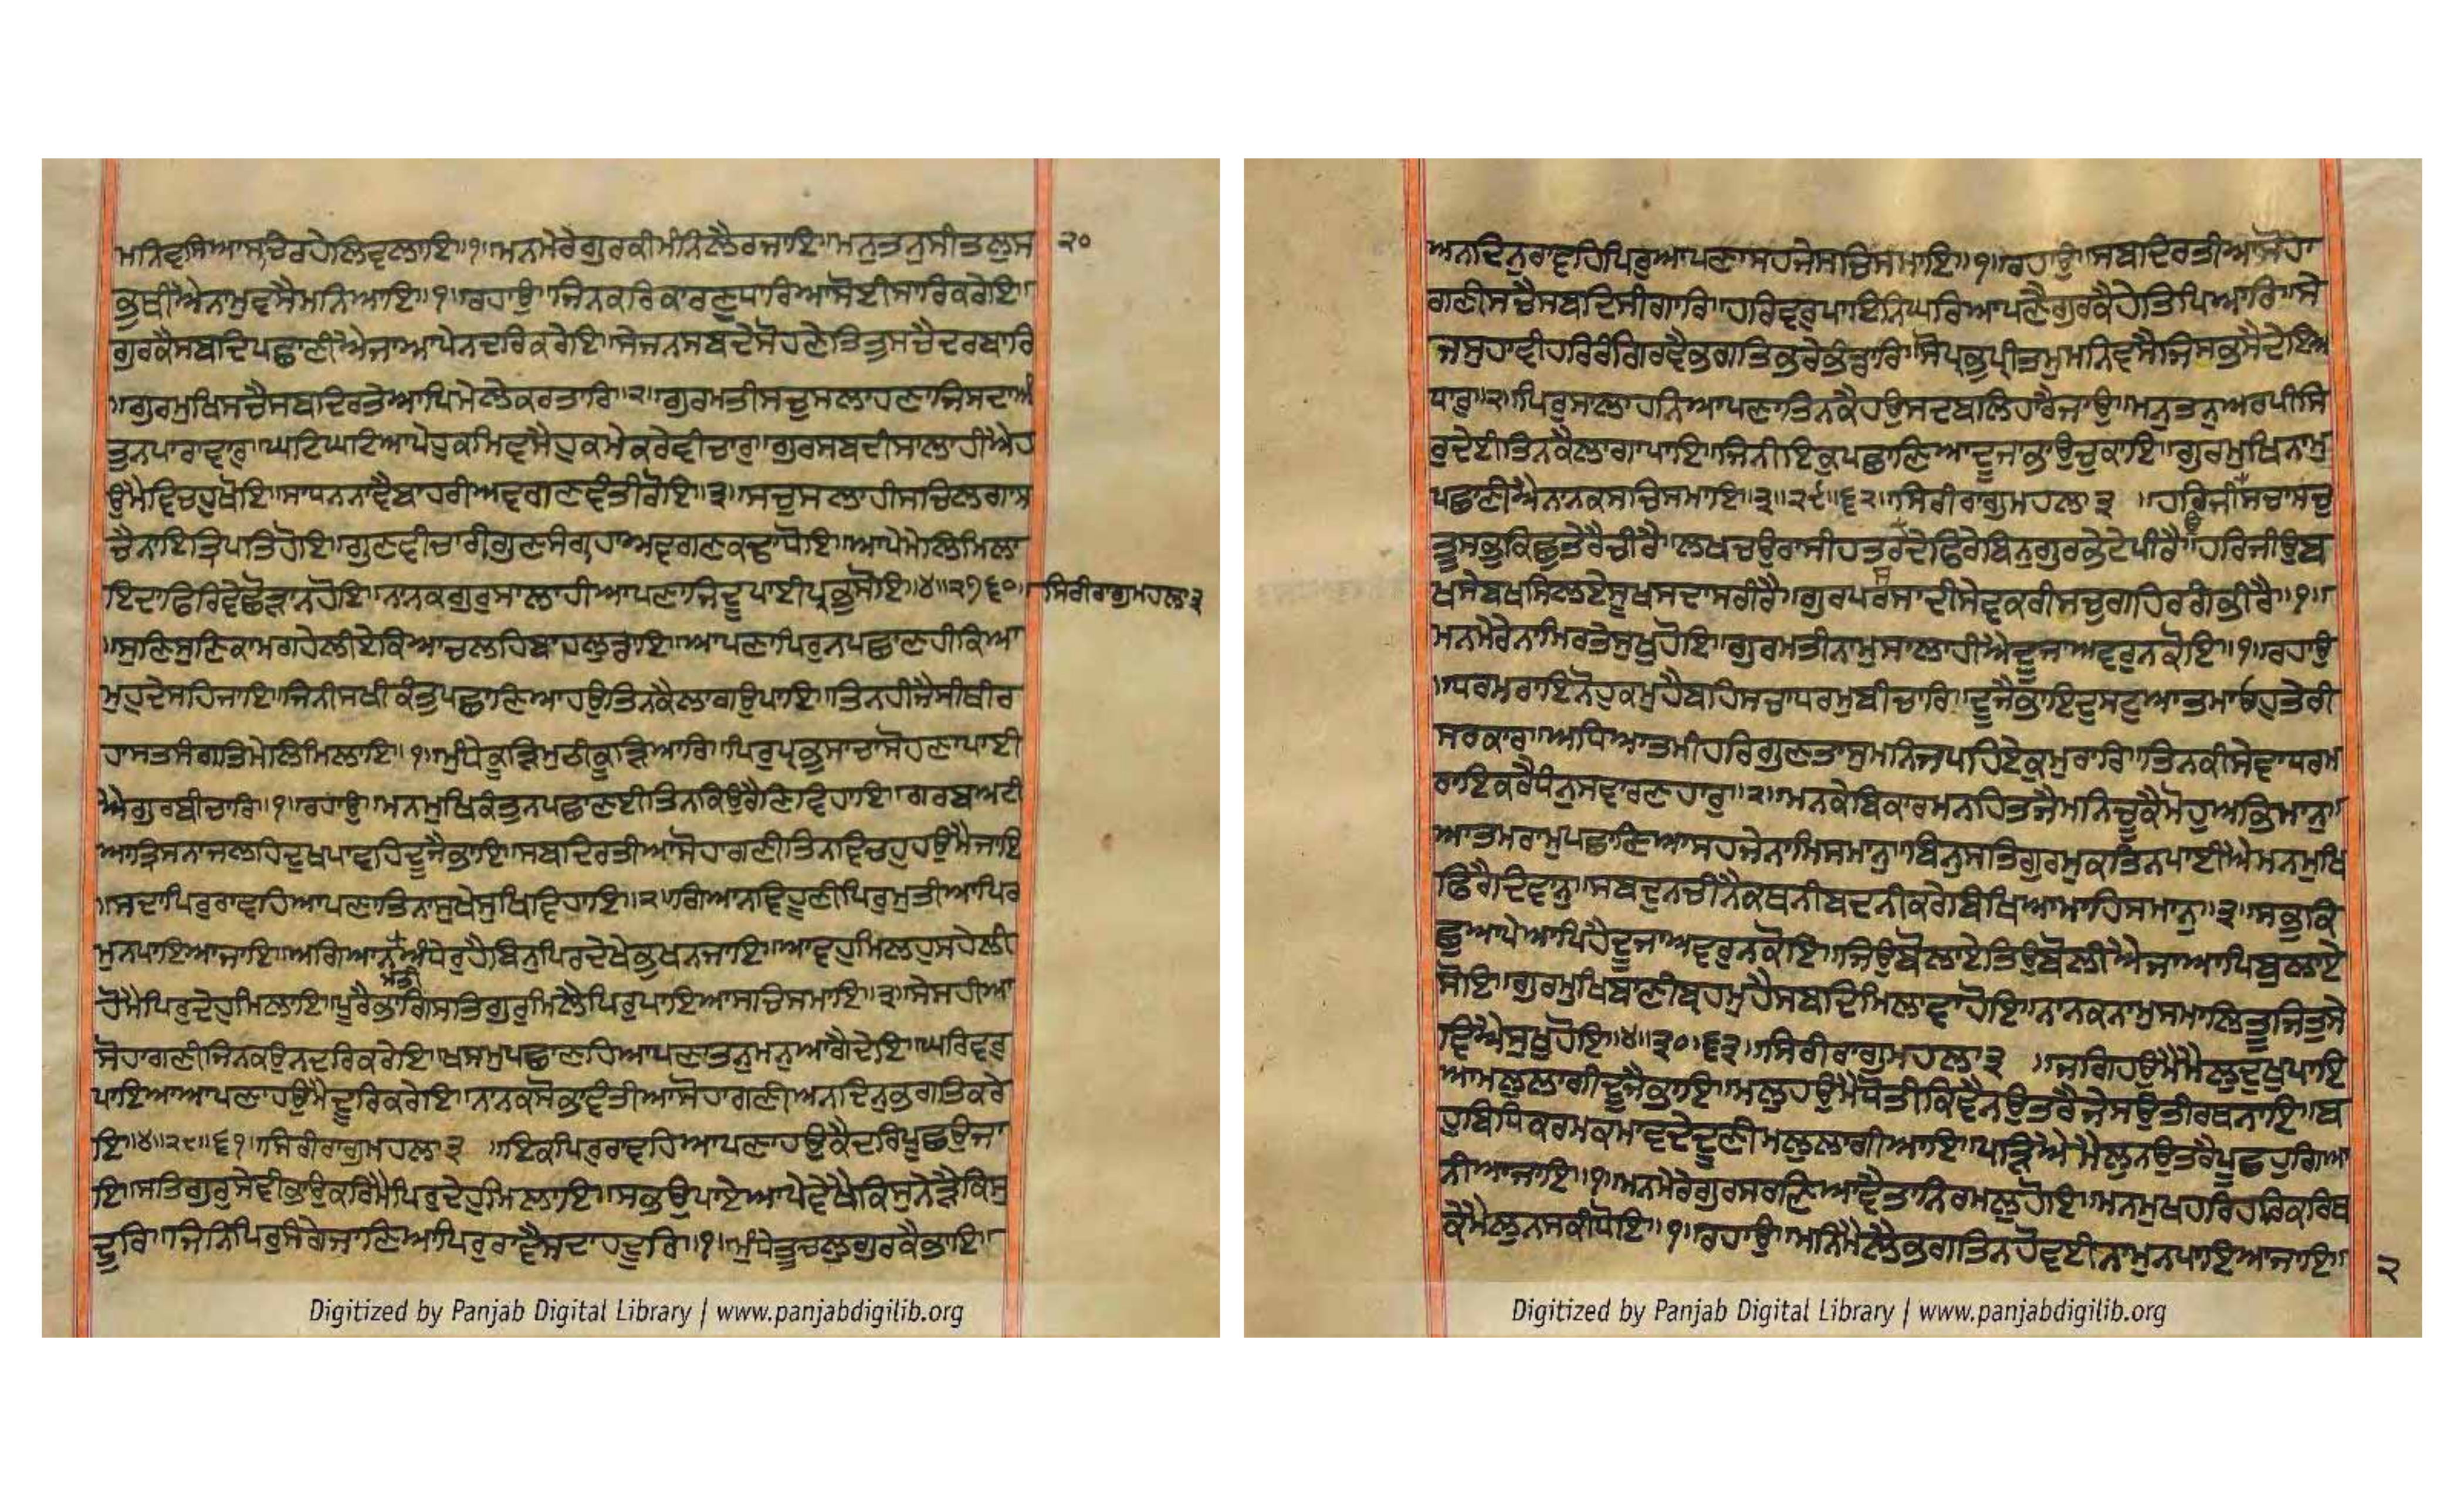 ਮਨਿਵਸਿਆਸਚਿਰਹੇਲਿਵਲਾਇ॥੧॥ਮਨਮੇਰੇਗੁਰਕੀਮੰਨਿਲੈਰਜਾਇ॥ਮਨੁਤਨੁਸੀਤਲੁਸ
੨੦
ਭੁਥੀਐਨਾਮੁਵਸੈਮਨਿਆਇ॥੧॥ਰਹਾਉ॥ਜਿਨਕਰਿਕਾਰਣੁਧਾਰਿਆਸੋਈਸਾਰਕਰੇਇ॥
ਗੁਰਕੈਸਬਦਿਪਛਾਣੀਐਜਾਆਪੇਨਦਰਿਕਰੇਇ॥ਸੇਜਨਸਬਦੇਸੋਹਣੇਤਿਤੁਸਚੈਦਰਬਾਰਿ
॥ਗੁਰਮੁਖਿਸਚੈਸਬਦਿਰਤੇਆਪਿਮੇਲੇਕਰਤਾਰਿ॥੨॥ਗੁਰਮਤੀਸਚੁਸਲਾਹਣਾਜਿਸਦਾਅੰ
ਤੁਨਪਾਰਾਵਾਰੁ॥ਘਟਿਘਟਿਆਪੇਹੁਕਮਿਵਸੈਹੁਕਮੇਕਰੇਵੀਚਾਰੁ॥ਗੁਰਸਬਦੀਸਾਲਾਹੀਐਹ
ਉਮੈਵਿਚਹੁਖੋਇ॥ਸਾਧਨਨਾਵੈਬਾਹਰੀਅਵਗਣਵੰਤੀਰੋਇ॥੩॥ਸਚੁਸਲਾਹੀਸਚਿਲਗਾਸ
ਚੈਨਾਇਤ੍ਰਿਪਤਿਹੋਇ॥ਗੁਣਵੀਚਾਰੀਗੁਣਸੰਗ੍ਰਹਾਅਵਗਣਕਢਾਧੋਇ॥ਆਪੇਮੇਲਿਮਿਲਾ
ਇਦਾਫਿਰਿਵੇਛੋੜਾਨਹੋਇ॥ਨਾਨਕਗੁਰੁਸਾਲਾਹੀਆਪਣਾਜਿਦੂਪਾਈਪ੍ਰਭੁਸੋਇ॥੪॥੨੭੬੦॥
ਸਿਰੀਰਾਗੁਮਹਲਾ੩
॥ਸੁਣਿਸੁਣਿਕਾਮਗਹੇਲੀਏਕਿਆਚਲਹਿਬਾਹਲੁਡਾਇ॥ਆਪਣਾਪਿਰੁਨਪਛਾਣਹੀਕਿਆ
ਮੁਹੁਦੇਸਹਿਜਾਇ॥ਜਿਨੀਸਖੀਕੰਤੁਪਛਾਣਿਆਹਉਤਿਨਕੈਲਾਗਉਪਾਇ॥ਤਿਨਹੀਜੈਸੀਥੀਰ
ਹਾਸਤਸੰਗਤਿਮੇਲਿਮਿਲਾਇ॥੧॥ਮੁੰਧੇਕੂੜਿਮੁਠੀਕੂੜਿਆਰਿ॥ਪਿਰੁਪ੍ਰਭੁਸਾਚਾਸੋਹਣਾਪਾਈ
ਐਗੁਰਬੀਚਾਰਿ॥੧॥ਰਹਾਉ॥ਮਨਮੁਖਿਕੰਤੁਨਪਛਾਣਈਤਿਨਕਿਉਰੈਣਿਵਿਹਾਇ॥ਗਰਬਅਟੀ
ਆਤ੍ਰਿਸਨਾਜਲਹਿਦੁਖਪਾਵਹਿਦੂਜੈਭਾਇ॥ਸਬਦਿਰਤੀਆਸੋਹਾਗਣੀਤਿਨਾਵਿਚਹੁਹਉਮੈਜਾਇ
॥ਸਦਾਪਿਰੁਰਾਵਹਿਆਪਣਾਤਿਨਾਸੁਖੇਸੁਖਿਵਿਹਾਇ॥੨॥ਗਿਆਨਵਿਹੂਣੀਪਿਰਮੁਤੀਆਪਿਰ
ਮੁਨਪਾਇਆਜਾਇ॥ਅਗਿਆਨਅੰਧੇਰੁਹੈਬਿਨੁਪਿਰਦੇਖੇਭੁਖਨਜਾਇ॥ਆਵਹੁਮਿਲਹੁਸਹੇਲੀ
ਹੋਮੈਪਿਰੁਦੇਹੁਮਿਲਾਇ॥ਪੂਰੈਭਾਗਿਸਤਿਗੁਰੁਮਿਲੈਪਿਰੁਪਾਇਆਸਚਿਸਮਾਇ॥੩॥ਸੇਸਹੀਆ
ਸੋਹਾਗਣੀਜਿਨਕਉਨਦਰਿਕਰੇਇ॥ਖਸਮੁਪਛਾਣਹਿਆਪਣਾਤਨੁਮਨੁਆਗੈਦੇਇ॥ਘਰਿਵਰੁ
ਪਾਇਆਆਪਣਾਹਉਮੈਦੂਰਿਕਰੇਇ॥ਨਾਨਕਸੋਭਾਵੰਤੀਆਸੋਹਾਗਣੀਅਨਦਿਨੁਭਗਤਿਕਰੇ
ਇ॥੪॥੨੮॥੬੧॥ਸਿਰੀਰਾਗੁਮਹਲਾ੩ ॥ਇਕਿਪਿਰੁਰਾਵਹਿਆਪਣਾਹਉਕੈਦਰਿਪੂਛਉਜਾ
ਇ॥ਸਤਿਗੁਰੁਸੇਵੀਭਾਉਕਰਿਮੈਪਿਰੁਦੇਹੁਮਿਲਾਇ॥ਸਭਉਪਾਏਆਪੇਵੇਖੈਕਿਸੁਨੇੜੈਕਿਸੁ
ਦੂਰਿ॥ਜਿਨਿਪਿਰੁਸੰਗੇਜਾਣਿਆਪਿਰੁਰਾਵੈਸਦਾਹਦੂਰਿ॥੧॥ਮੁੰਧੇਤੂਚਲੁਗੁਰਕੈਭਾਇ॥
Digitized by Panjab Digital Library | www.panjabdigilib.org
ਅਨਦਿਨੁਰਾਵਹਿਪਿਰੁਆਪਣਾਸਹਜੇਸਚਿਸਮਾਇ॥੧॥ਰਹਾਉ॥ਸਬਦਿਰਤੀਆਸੋਹਾ
ਗਣੀਸਚੈਸਬਦਿਸੀਗਾਰਿ॥ਹਰਿਵਰੁਪਾਇਨਿਘਰਿਆਪਣੈਗੁਰਕੈਹੇਤਿਪਿਆਰਿ॥ਸੇ
ਜਸੁਹਾਵੀਹਰਿਰੰਗਿਰਵੈਭਗਤਿਭਰੇਭੰਡਾਰਿ॥ਸੋਪ੍ਰਭੁਪ੍ਰੀਤਮੁਮਨਿਵਸੈਜਿਸਭਸੈਦੇਇਅ
ਧਾਰੁ॥੨॥ਪਿਰੁਸਾਲਾਹਨਿਆਪਣਾਤਿਨਕੈਹਉਸਦਬਲਿਹਾਰੈਜਾਉ॥ਮਨੁਤਨੁਅਰਪੀਸਿ
ਰੁਦੇਈਤਿਨਕੈਲਾਗਾਪਾਇ॥ਜਿਨੀਇਕੁਪਛਾਣਿਆਦੂਜਾਭਾਉਚੁਕਾਇ॥ਗੁਰਮੁਖਿਨਾਮੁ
ਪਛਾਣੀਐਨਾਨਕਸਚਿਸਮਾਇ॥੩॥੨੯॥੬੨॥ਸਿਰੀਰਾਗੁਮਹਲਾ੩ ॥ਹਰਿਜੀਸਚਾਸਚੁ
ਤੂਸਭੁਕਿਛੁਤੇਰੈਚੀਰੈ॥ਲਖਚਉਰਾਸੀਹਤਰਦੇਫਿਰੇਬਿਨੁਗੁਰਭੇਟੇਪੀਰੈ॥ਹਰਿਜੀਉਬ
ਖਸੇਬਖਸਿਲਏਸੂਖਸਦਾਸਰੀਰੈ॥ਗੁਰਪਰਸਾਦੀਸੇਵਕਰੀਸਚੁਗਹਿਰਗੰਭੀਰੈ॥੧॥
ਮਨਮੇਰੇਨਾਮਿਰਤੇਸੁਖੁਹੋਇ॥ਗੁਰਮਤੀਨਾਮੁਸਾਲਾਹੀਐਦੂਜਾਅਵਰੁਨਕੋਇ॥੧॥ਰਹਾਉ
॥ਧਰਮਰਾਇਨੋਹੁਕਮੁਹੈਬਹਿਸਚਾਧਰਮੁਬੀਚਾਰਿ॥ਦੂਜੈਭਾਇਦੁਸਟੁਆਤਮਾਓਹੁਤੇਰੀ
ਸਰਕਾਰ॥ਅਧਿਆਤਮੀਹਰਿਗੁਣਤਾਸੁਮਨਿਜਪਹਿਏਕੁਮੁਰਾਰਿ॥ਤਿਨਕੀਸੇਵਾਧਰਮ
ਰਾਇਕਰੈਧੰਨੁਸਵਾਰਣਹਾਰੁ॥੨॥ਮਨਕੇਬਿਕਾਰਮਨਹਿਤਜੈਮਨਿਚੂਕੈਮੋਹੁਅਭਿਮਾਨੁ॥
ਆਤਮਰਾਮੁਪਛਾਣਿਆਸਹਜੇਨਾਮਿਸਮਾਨੁ॥ਬਿਨੁਸਤਿਗੁਰਮੁਕਤਿਨਪਾਈਐਮਨਮੁਖਿ
ਫਿਰੈਦਿਵਾਨੁ॥ਸਬਦੁਨਚੀਨੈਕਥਨੀਬਦਨੀਕਰੇਬਿਖਿਆਮਾਹਿਸਮਾਨੁ॥੩॥ਸਭੁਕਿ
ਛੁਆਪੇਆਪਿਹੈਦੂਜਾਅਵਰੁਨਕੋਇ॥ਜਿਉਬੋਲਾਏਤਿਉਬੋਲੀਐਜਾਆਪਿਬੁਲਾਏ
ਸੋਇ॥ਗੁਰਮੁਖਿਬਾਣੀਬ੍ਰਹਮੁਹੈਸਬਦਿਮਿਲਾਵਾਹੋਇ॥ਨਾਨਕਨਾਮੁਸਮਾਲਿਤੂਜਿਤੁਸੇ
ਵਿਐਸੁਖੁਹੋਇ॥੪॥੩੦॥੬੩॥ਸਿਰੀਰਾਗੁਮਹਲਾ੩ ॥ਜਗਿਹਉਮੈਮੈਲੁਦੁਖੁਪਾਇ
ਆਮਲੁਲਾਗੀਦੂਜੈਭਾਇ॥ਮਲੁਹਉਮੈਧੋਤੀਕਿਵੈਨਉਤਰੈਜੇਸਉਤੀਰਥਨਾਇ॥ਬ
ਹੁਬਿਧਿਕਰਮਕਮਾਵਦੇਦੂਣੀਮਲੁਲਾਗੀਆਇ॥ਪੜਿਐਮੈਲੁਨਉਤਰੈਪੂਛਹੁਗਿਆ
ਨੀਆਜਾਇ॥੧॥ਮਨਮੇਰੇਗੁਰਸਰਣਿਆਵੈਤਾਨਿਰਮਲੁਹੋਇ॥ਮਨਮੁਖਹਰਿਹਰਿਕਰਿਥ
ਕੇਮੈਲੁਨਸਕੀਧੋਇ॥੧॥ਰਹਾਉ॥ਮਨਿਮੈਲੈਭਗਤਿਨਹੋਵਈਨਾਮੁਨਪਾਇਆਜਾਇ॥
੨
Digitized by Panjab Digital Library | www.panjabdigilib.org